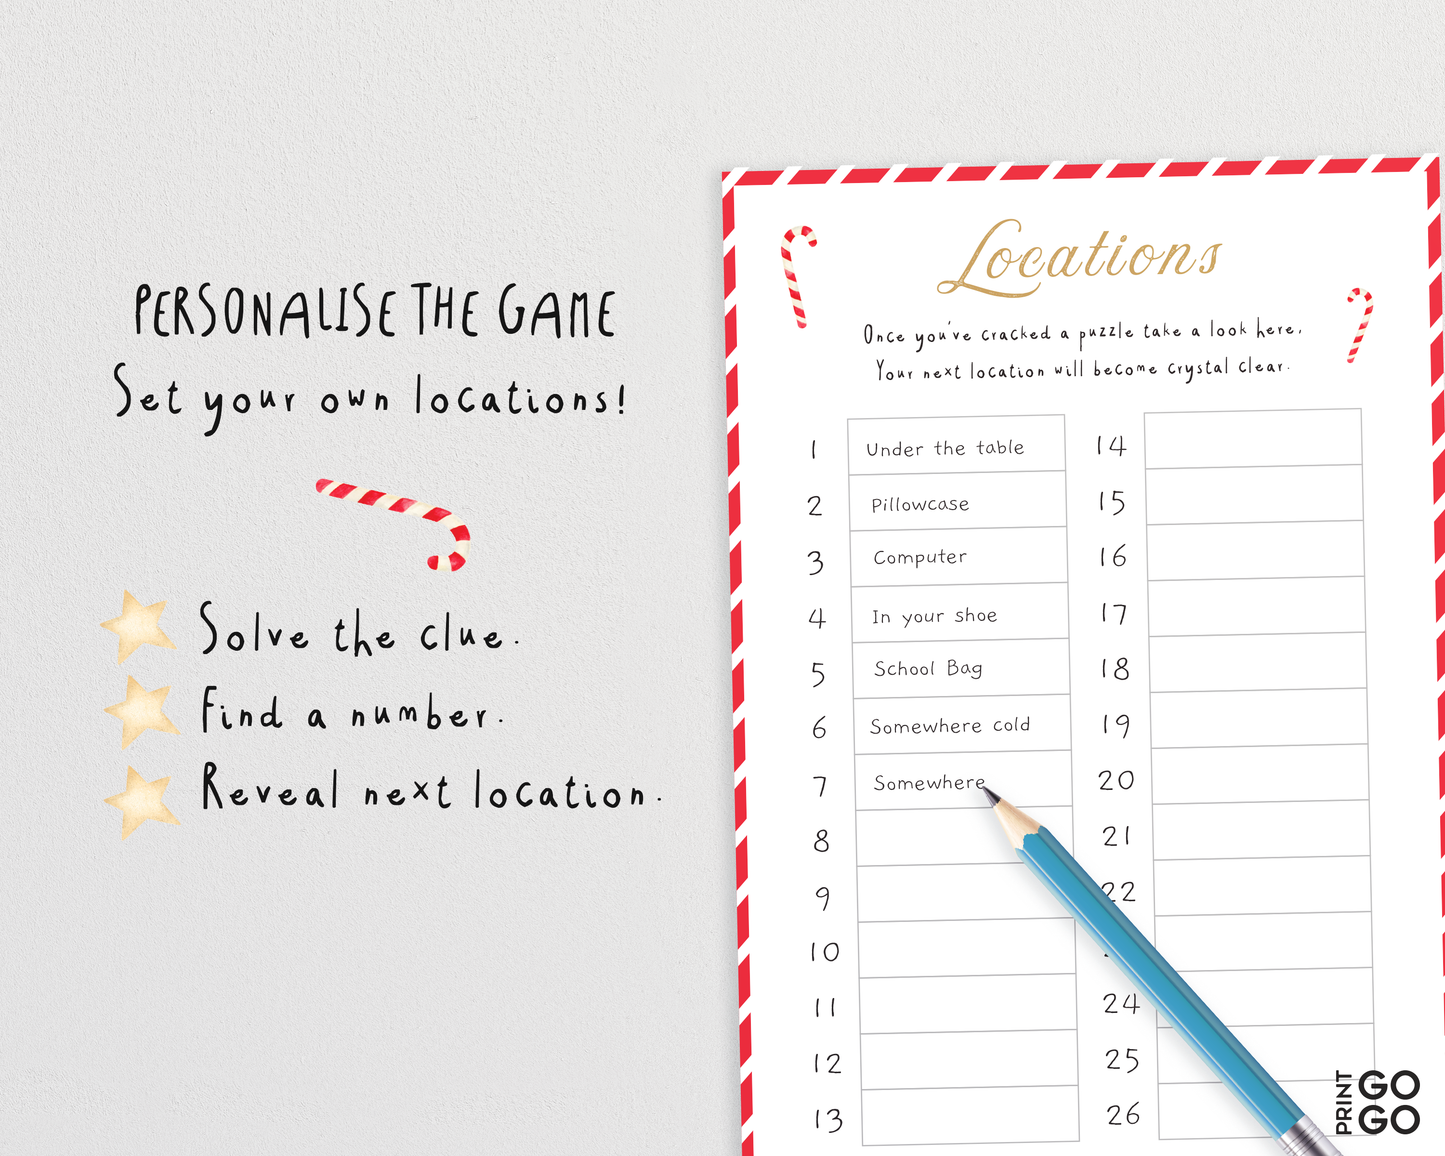 PERSONALISE THE GAME
Set your own locations!
Solve the clue.
Find a number.
Reveal next location.
Locations
Once you've cracked a puzzle take a look here,
Your next location will become crystal clear.
1 Under the table
2 Pillowcase
3 Computer
4 In your shoe
5 School Bag
6 Somewhere cold
7 Somewhere
8
9
10
11
12
13
14
15
16
17
18
19
20
21
22
24
25
26
PRINT GO GO